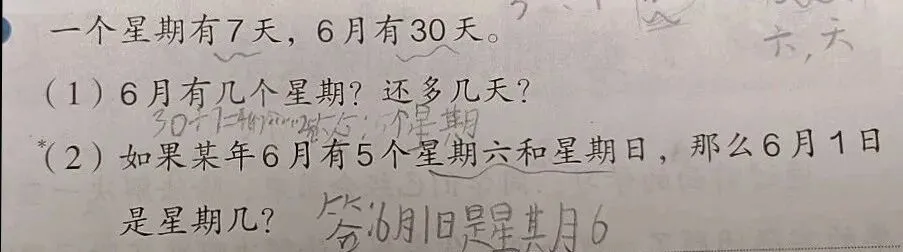 一个星期有7天，6月有30天。
六,天
（1）6月有几个星期？还多几天？
30÷7=4(个)……2(天) 个星期
*（2）如果某年6月有5个星期六和星期日，那么6月1日
是星期几？ 答:6月1日是星期6